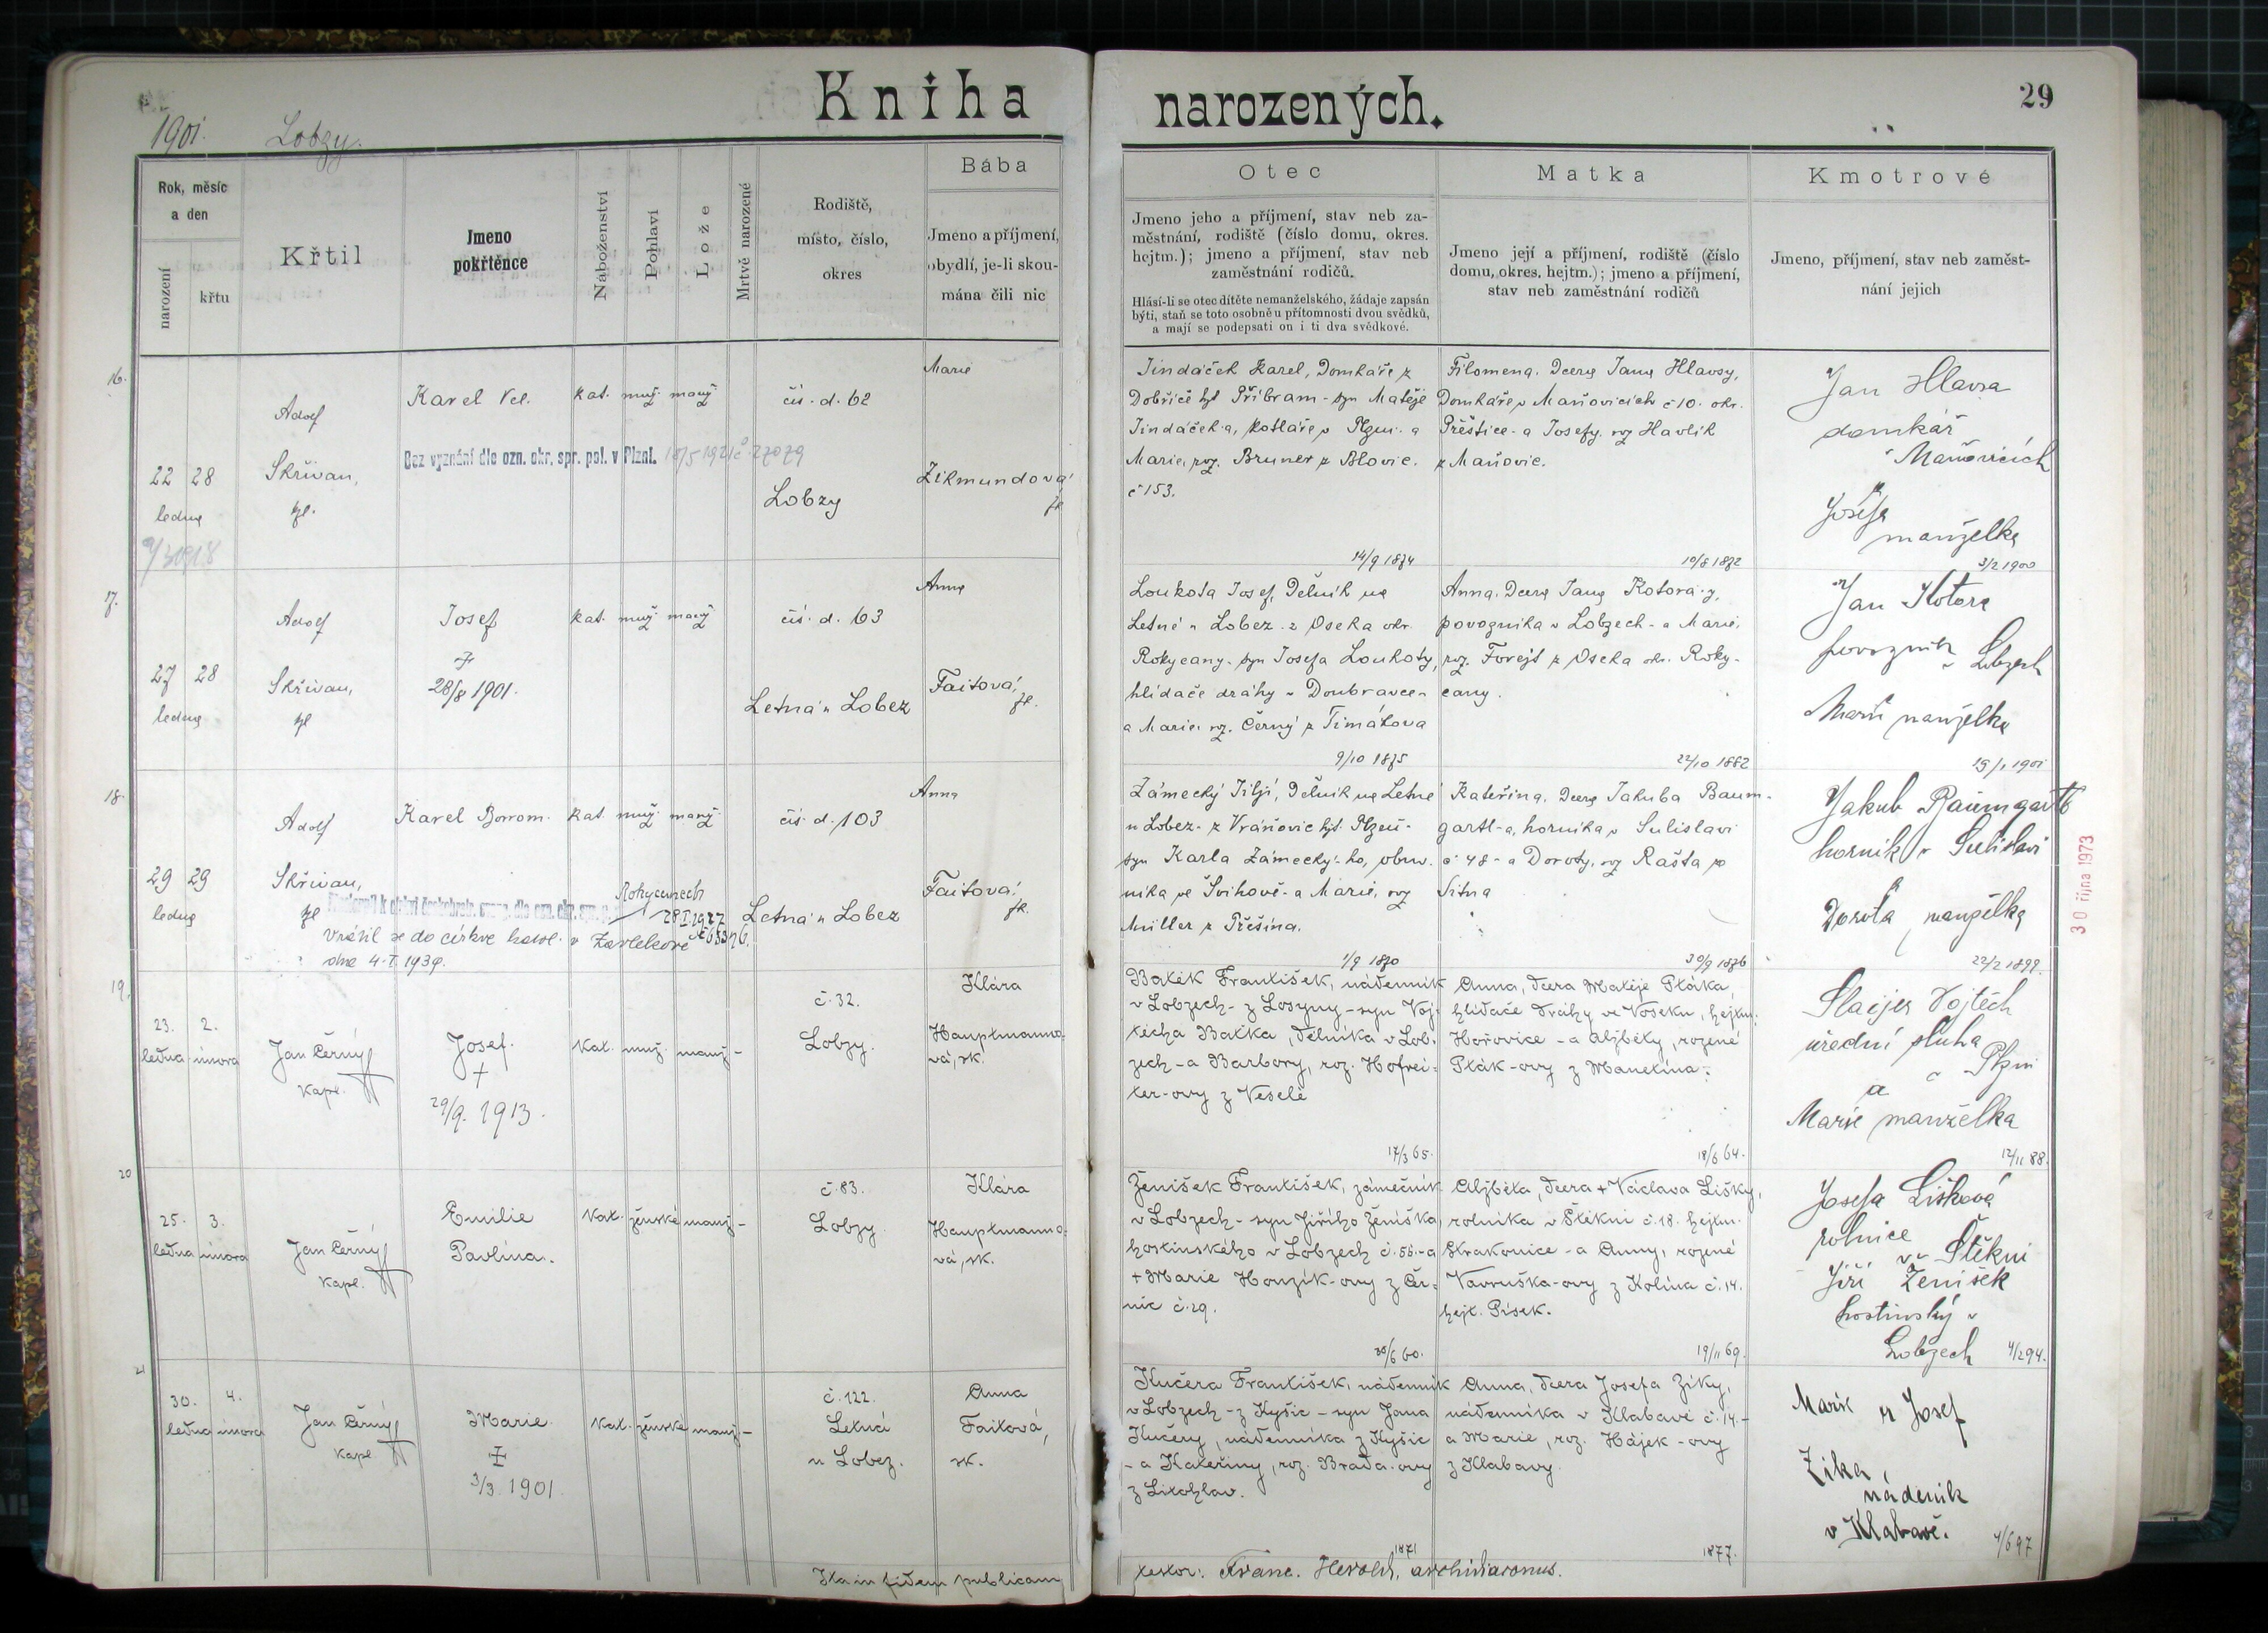 Kniha narozených.
29
1901. Lobzy.
Rok, měsíc a den
narození
křtu
Křtil
Jmeno pokřtěnce
Náboženství
Pohlaví
Lože
Mrtvě narozené
Rodiště,
místo, číslo,
okres
Bába
Jmeno a příjmení,
obydlí, je-li skou-
mána čili nic
Otec
Jmeno jeho a příjmení, stav neb za-
městnání, rodiště (číslo domu, okres.
hejtm.); jmeno a příjmení, stav neb
zaměstnání rodičů.
Hlásí-li se otec dítěte nemanželského, žádaje zapsán
býti, staň se toto osobně u přítomnosti dvou svědků,
a mají se podepsati on i ti dva svědkové.
Matka
Jmeno její a příjmení, rodiště (číslo
domu, okres. hejtm.); jmeno a příjmení,
stav neb zaměstnání rodičů
Kmotrové
Jmeno, příjmení, stav neb zaměst-
nání jejich
16.
22 28
ledna
Adolf
Skřivan,
Karel
kat. muž. manž.
Bez vyznání dle ozn. okr. spr. pol. v Plzni.
čís. d. 62
Lobzy
Marie
Zikmundová
Jindáček Karel, Domkář z
Dobříč hjt Příbram - syn Matěje
Jindáček-a, kotláře v Plzni - a
Marie, roz. Bruner z Blovic.
č 153.
14/9 1874
Filomena, Dcera Jana Hlavsy,
Domkáře v Maňovicích č 10. okr.
Přeštice - a Josefy, roz Havlík
z Maňovic.
10/8 1872
Jan Hlavsa
domkář
v Maňovicích
Josefa
manželka
3/2 1900
17.
27 28
ledna
Adolf
Skřivan,
Josef
28/8 1901.
kat. muž. manž.
čís. d. 63
Letná u Lobez
Anna
Faitová,
Loukota Josef, Dělník na
Letné u Lobez - z Oseka okr.
Rokycany - syn Josefa Loukoty,
hlídače dráhy v Doubravce -
a Marie, roz. Černý z Timákova
9/10 1875
Anna, Dcera Jana Kotora-y,
povozníka v Lobzech - a Marie,
roz. Forejt z Oseka okr. Roky-
cany.
22/10 1882
Jan Kotora
povozník v Lobzech
Marie manželka
19/1 1901
18.
29 29
ledna
Adolf
Skřivan,
Karel Borrom.
kat. muž. manž.
Rokycanech
28 I 1927
Vrátil se do církve katol. v Zavlekově
dne 4. I. 1939.
čís. d. 103
Letná u Lobez
Anna
Faitová,
Zámecký Jiljí, Dělník na Letné
u Lobez - z Vráňovic hjt. Plzeň -
syn Karla Zámecký-ho, obuv.
níka ve Švihově - a Marie, roz
Müller z Přešína.
1/9 1870
Kateřina, Dcera Jakuba Baum-
gartl-a, horníka v Sulislavi
č 48 - a Doroty, roz Rašta ze
Sitna
30/9 1876
Jakub Baumgartl
horník v Sulislavi
Dorota manželka
22/2 1899.
30 října 1973
19.
23. 2.
ledna února
Jan Černý
kapl.
Josef.
+
29/9. 1913.
Kat. muž. manž-
č. 32.
Lobzy.
Klára
Hauptmanno-
vá, zk.
Batěk František, nádenník
v Lobzech - z Losyny - syn Voj-
těcha Baťka, dělníka v Lob-
zech - a Barbory, roz. Hofrei-
ter-ovy z Veselé
17/3 65.
Anna, dcera Matěje Ptáka,
hlídače dráhy ve Voseku, hejtm.
Hořovice - a Alžběty, rozené
Pták-ovy z Manetína.
18/6 64.
Slacjer Vojtěch
úřední sluha
v Plzni
a
Marie manželka
12/11 88.
20
25. 3.
ledna února
Jan Černý
kapl.
Emilie
Pavlína.
Kat. ženské manž-
č. 83.
Lobzy.
Klára
Hauptmanno-
vá, zk.
Ženíšek František, zámečník
v Lobzech - syn Jiřího Ženíška,
hostinského v Lobzech č. 55. - a
+ Marie Honzík-ovy z Čer-
nic č. 29.
30/6 60.
Alžběta, dcera + Václava Lišky,
rolníka v Štěkni č. 18. hejtm.
Strakonice - a Anny, rozené
Vavruška-ovy z Kolína č. 14.
hejt. Písek.
19/11 69.
Josefa Lišková
rolnice
ve Štěkni
Jiří Ženíšek
hostinský v
Lobzech 4/2 94.
21
30. 4.
ledna února
Jan Černý
kapl.
Marie
3/3. 1901.
Kat. ženské manž-
č. 122.
Letná
u Lobez.
Anna
Faitová,
zk.
Kučera František, nádenník
v Lobzech - z Kyšic - syn Jana
Kučery, nádenníka z Kyšic
- a Kateřiny, roz. Brada-ovy
z Litohlav.
1871
Anna, dcera Josefa Ziky,
nádenníka v Klabavě č. 14. -
a Marie, roz. Hájek-ovy
z Klabavy.
1877.
Marie a Josef
Zika,
nádeník
v Klabavě.
4/6 97
Ita in fidem publicam
testor: Franc. Herold, archidiaconus.